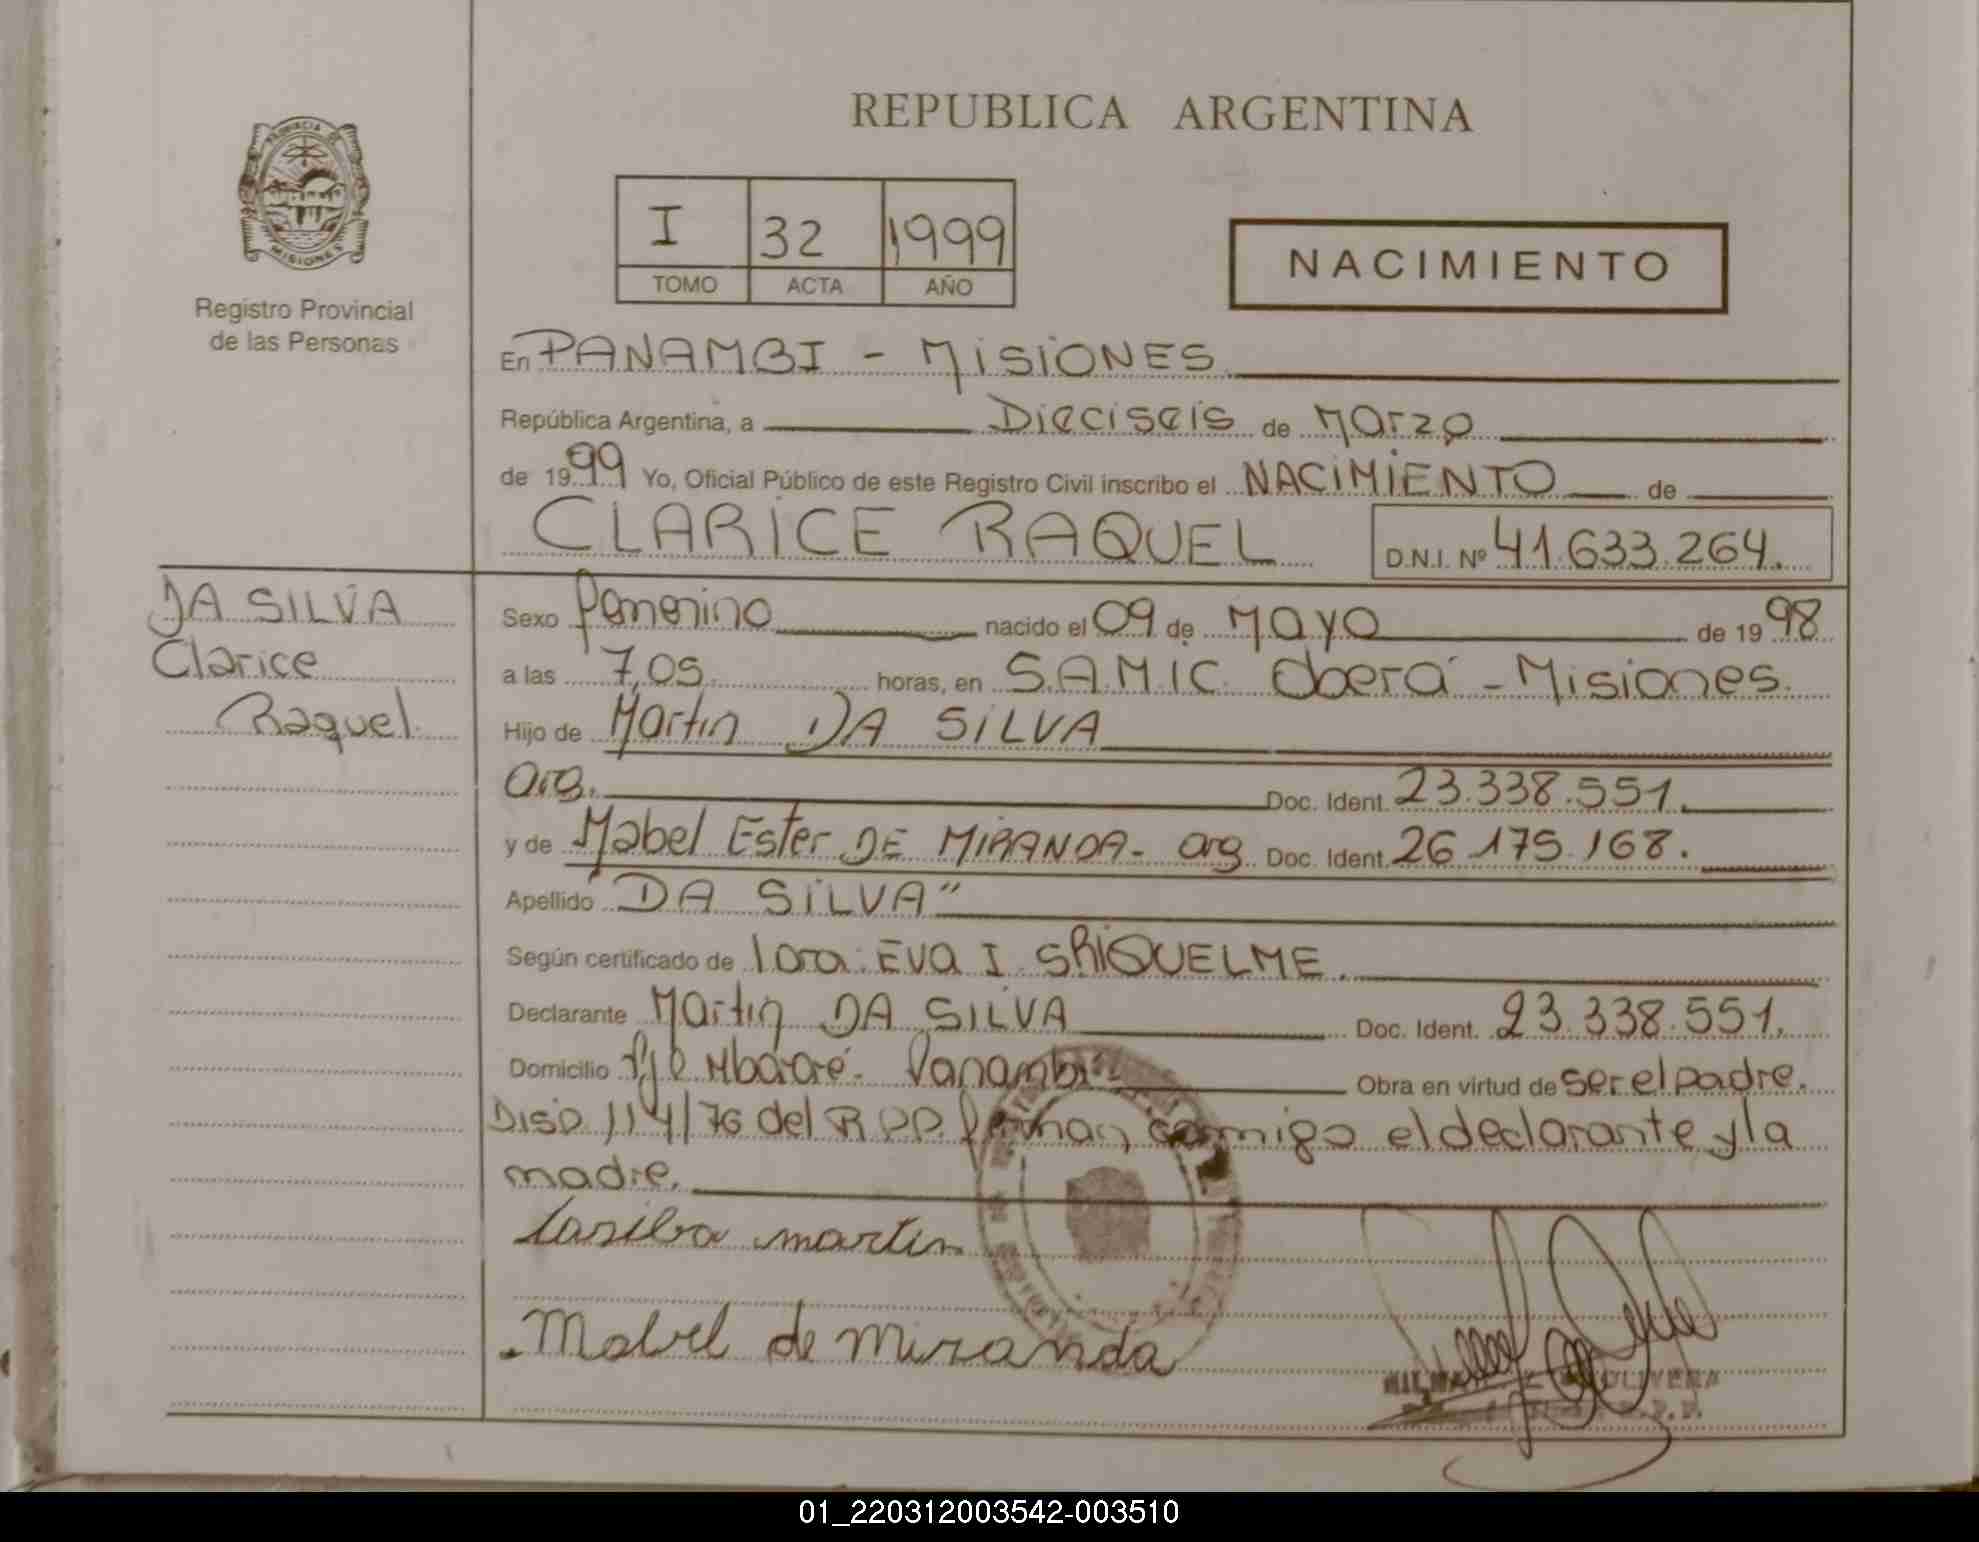 REPUBLICA ARGENTINA
PROVINCIA DE
MISIONES
Registro Provincial
de las Personas
I 32 1999
TOMO ACTA AÑO
NACIMIENTO
En PANAMBI - MISIONES
República Argentina, a Dieciseis de Marzo
de 1999 Yo, Oficial Público de este Registro Civil inscribo el NACIMIENTO de
CLARICE RAQUEL D.N.I. Nº 41.633.264.
DA SILVA
Clarice
Raquel.
Sexo femenino nacido el 09 de Mayo de 1998
a las 7,05 horas, en S.A.M.I.C. Oberá - Misiones.
Hijo de Martin DA SILVA
arg. Doc. Ident. 23.338.551.
y de Mabel Ester DE MIRANDA - arg. Doc. Ident. 26.175.168.
Apellido DA SILVA"
Según certificado de EVA I. SRIQUELME.
Declarante Martin DA SILVA Doc. Ident. 23.338.551.
Domicilio Mbararé - Panambi - Obra en virtud de ser el padre.
Disp. 114/76 del R.P.P. firman conmigo el declarante y la
madre.
Dasilva martin
Mabel de Miranda
OLIVERA
01_220312003542-003510